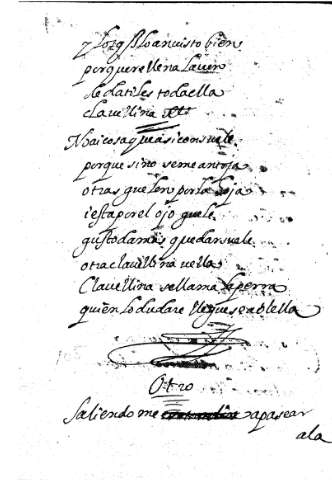 y los q̃ lo an visto bien
porque re llena la ven
de datiles toda ella
clavellina etc.
N hai cosa q mas iconsuele
porque si no se me antoja
otras que len por la oja
i esta por el ojo guele
gusto da mas que dansuale
otra clavellina vella
Clavellina se llama la perra
quien lo dudare llegue se a olella
Otro
Saliendo me a pasear
a la